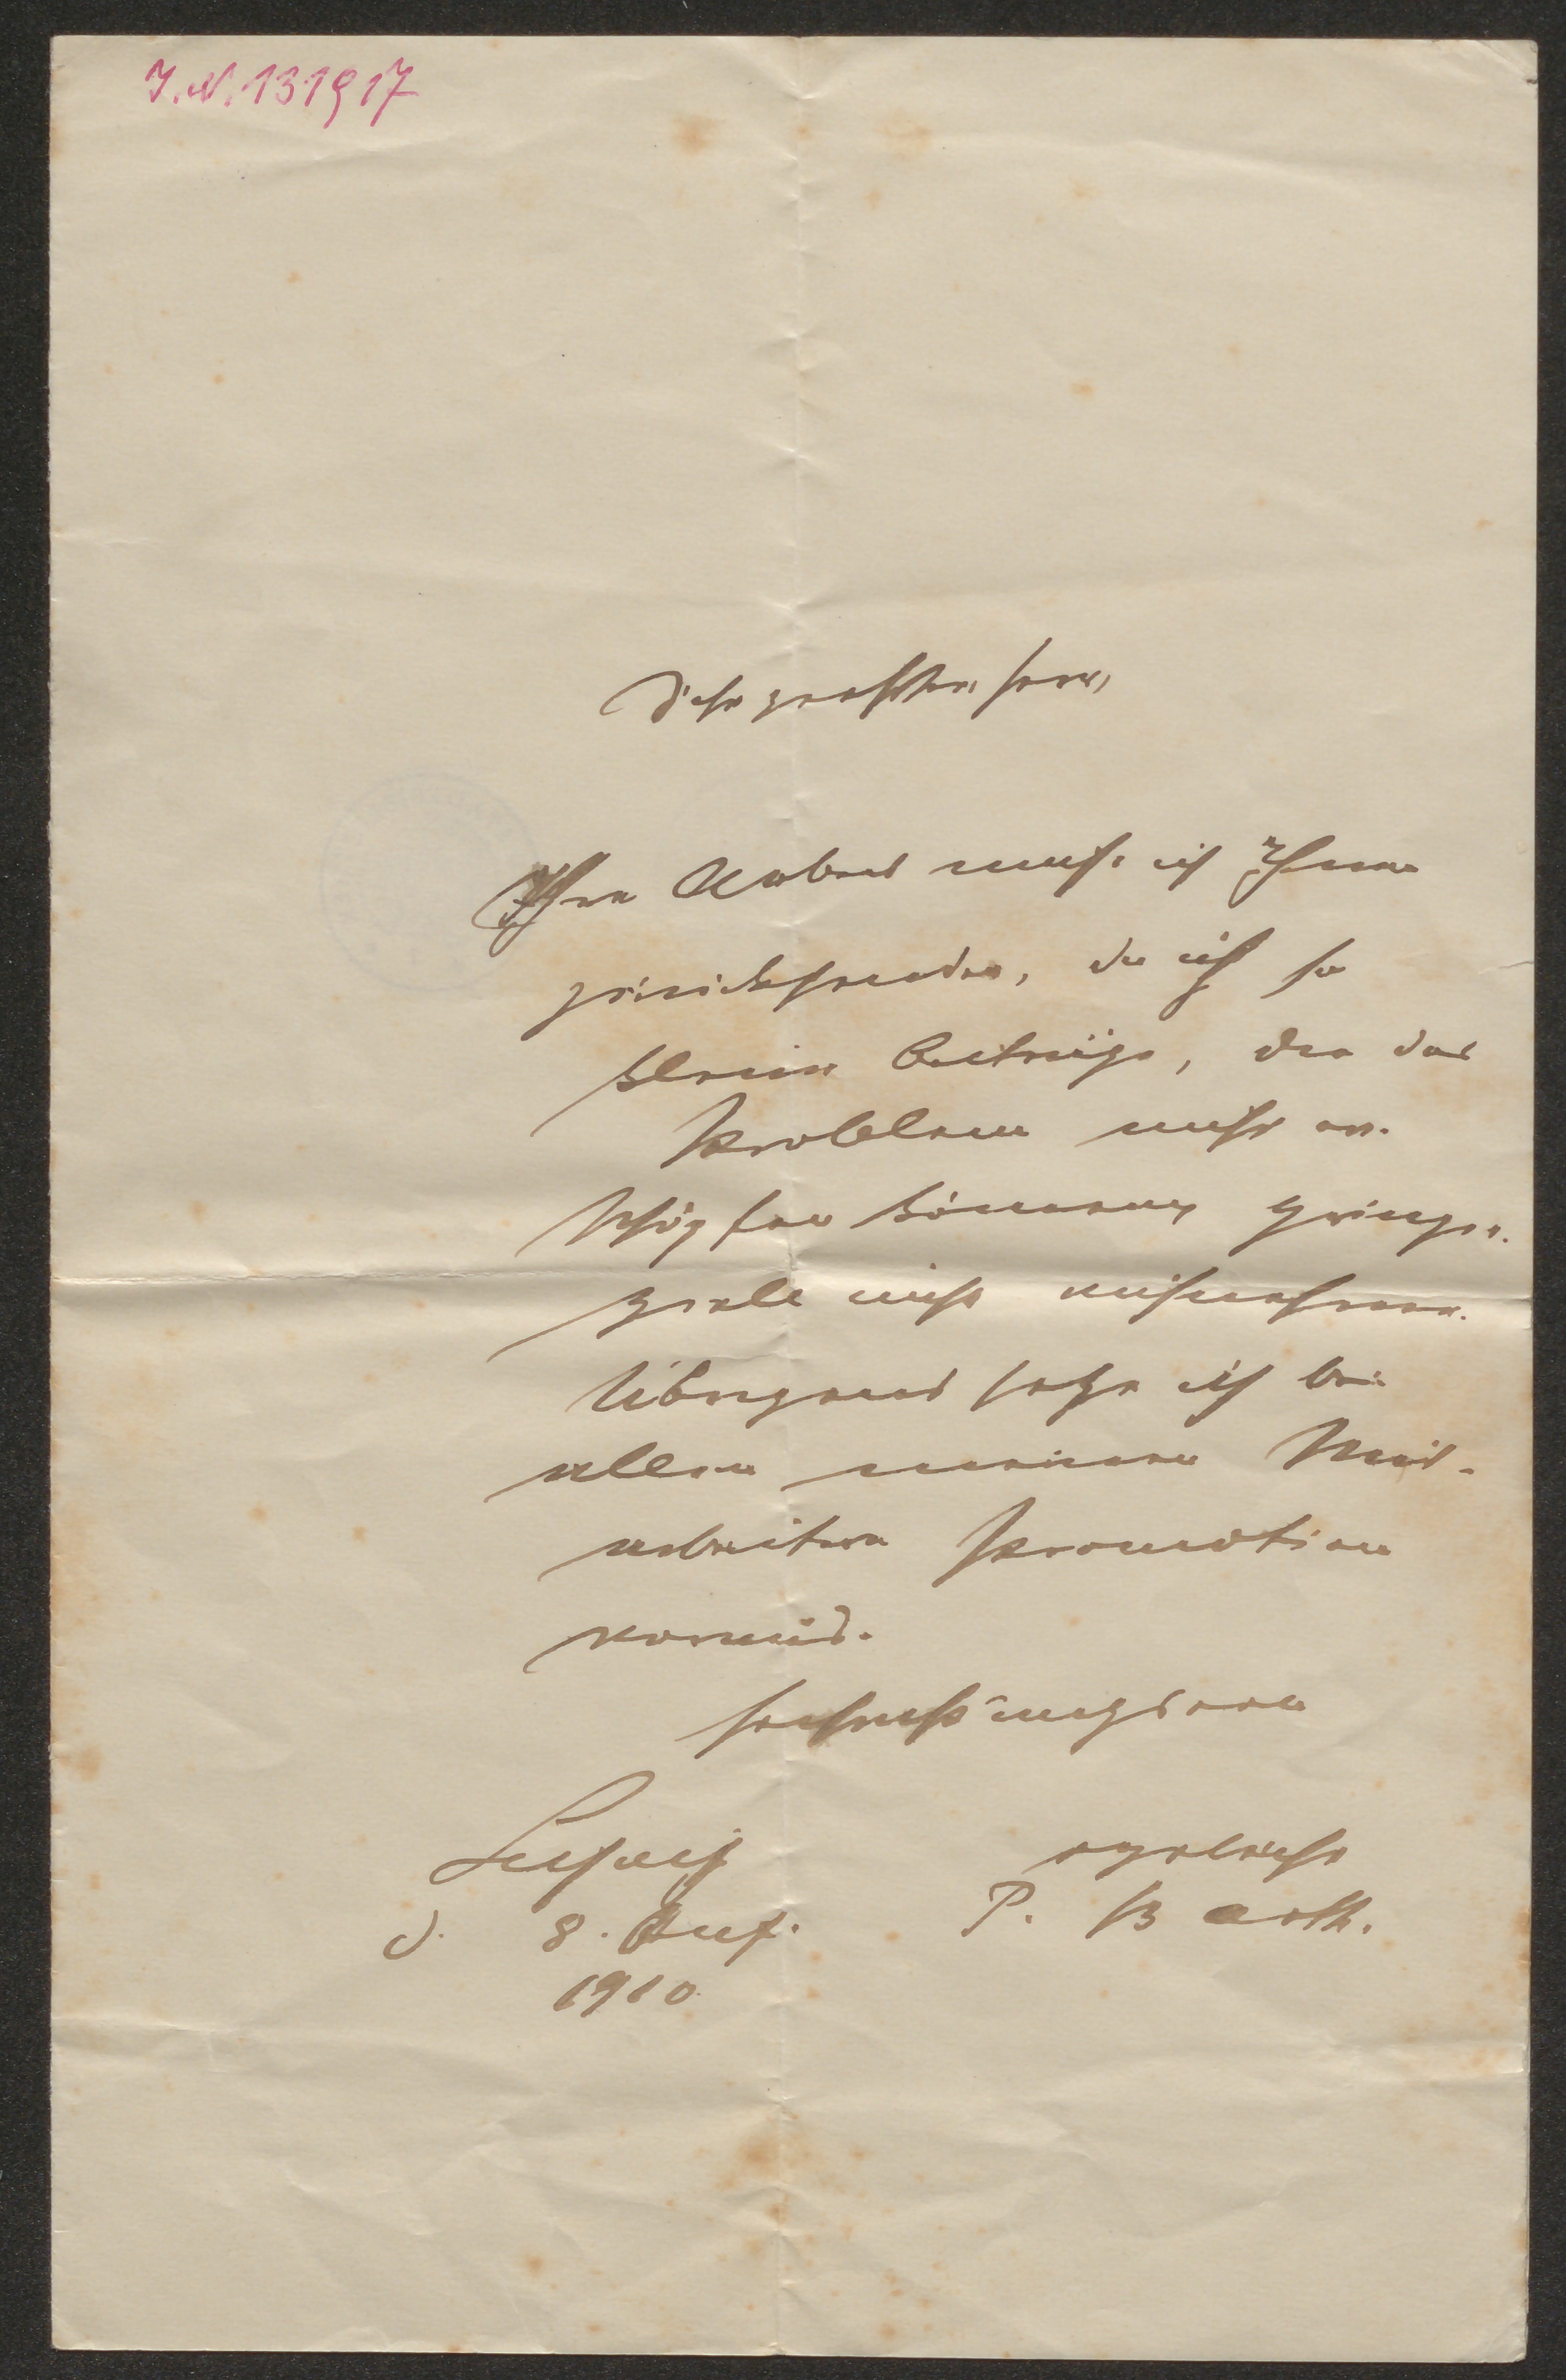 I.N. 131917
Sehr geehrter Herr,
Ihre Arbeit muß ich Ihnen
zurücksenden, da ich so
kleine Beiträge, die das
Problem nicht er-
schöpfen können, prinzi-
piell nicht aufnehme.
Übrigens setze ich bei
allen meinen Mit-
arbeitern Promotion
voraus.
Hochachtungsvoll
Leipzig ergebenst
d. 8. Aug. P. Barth.
1910